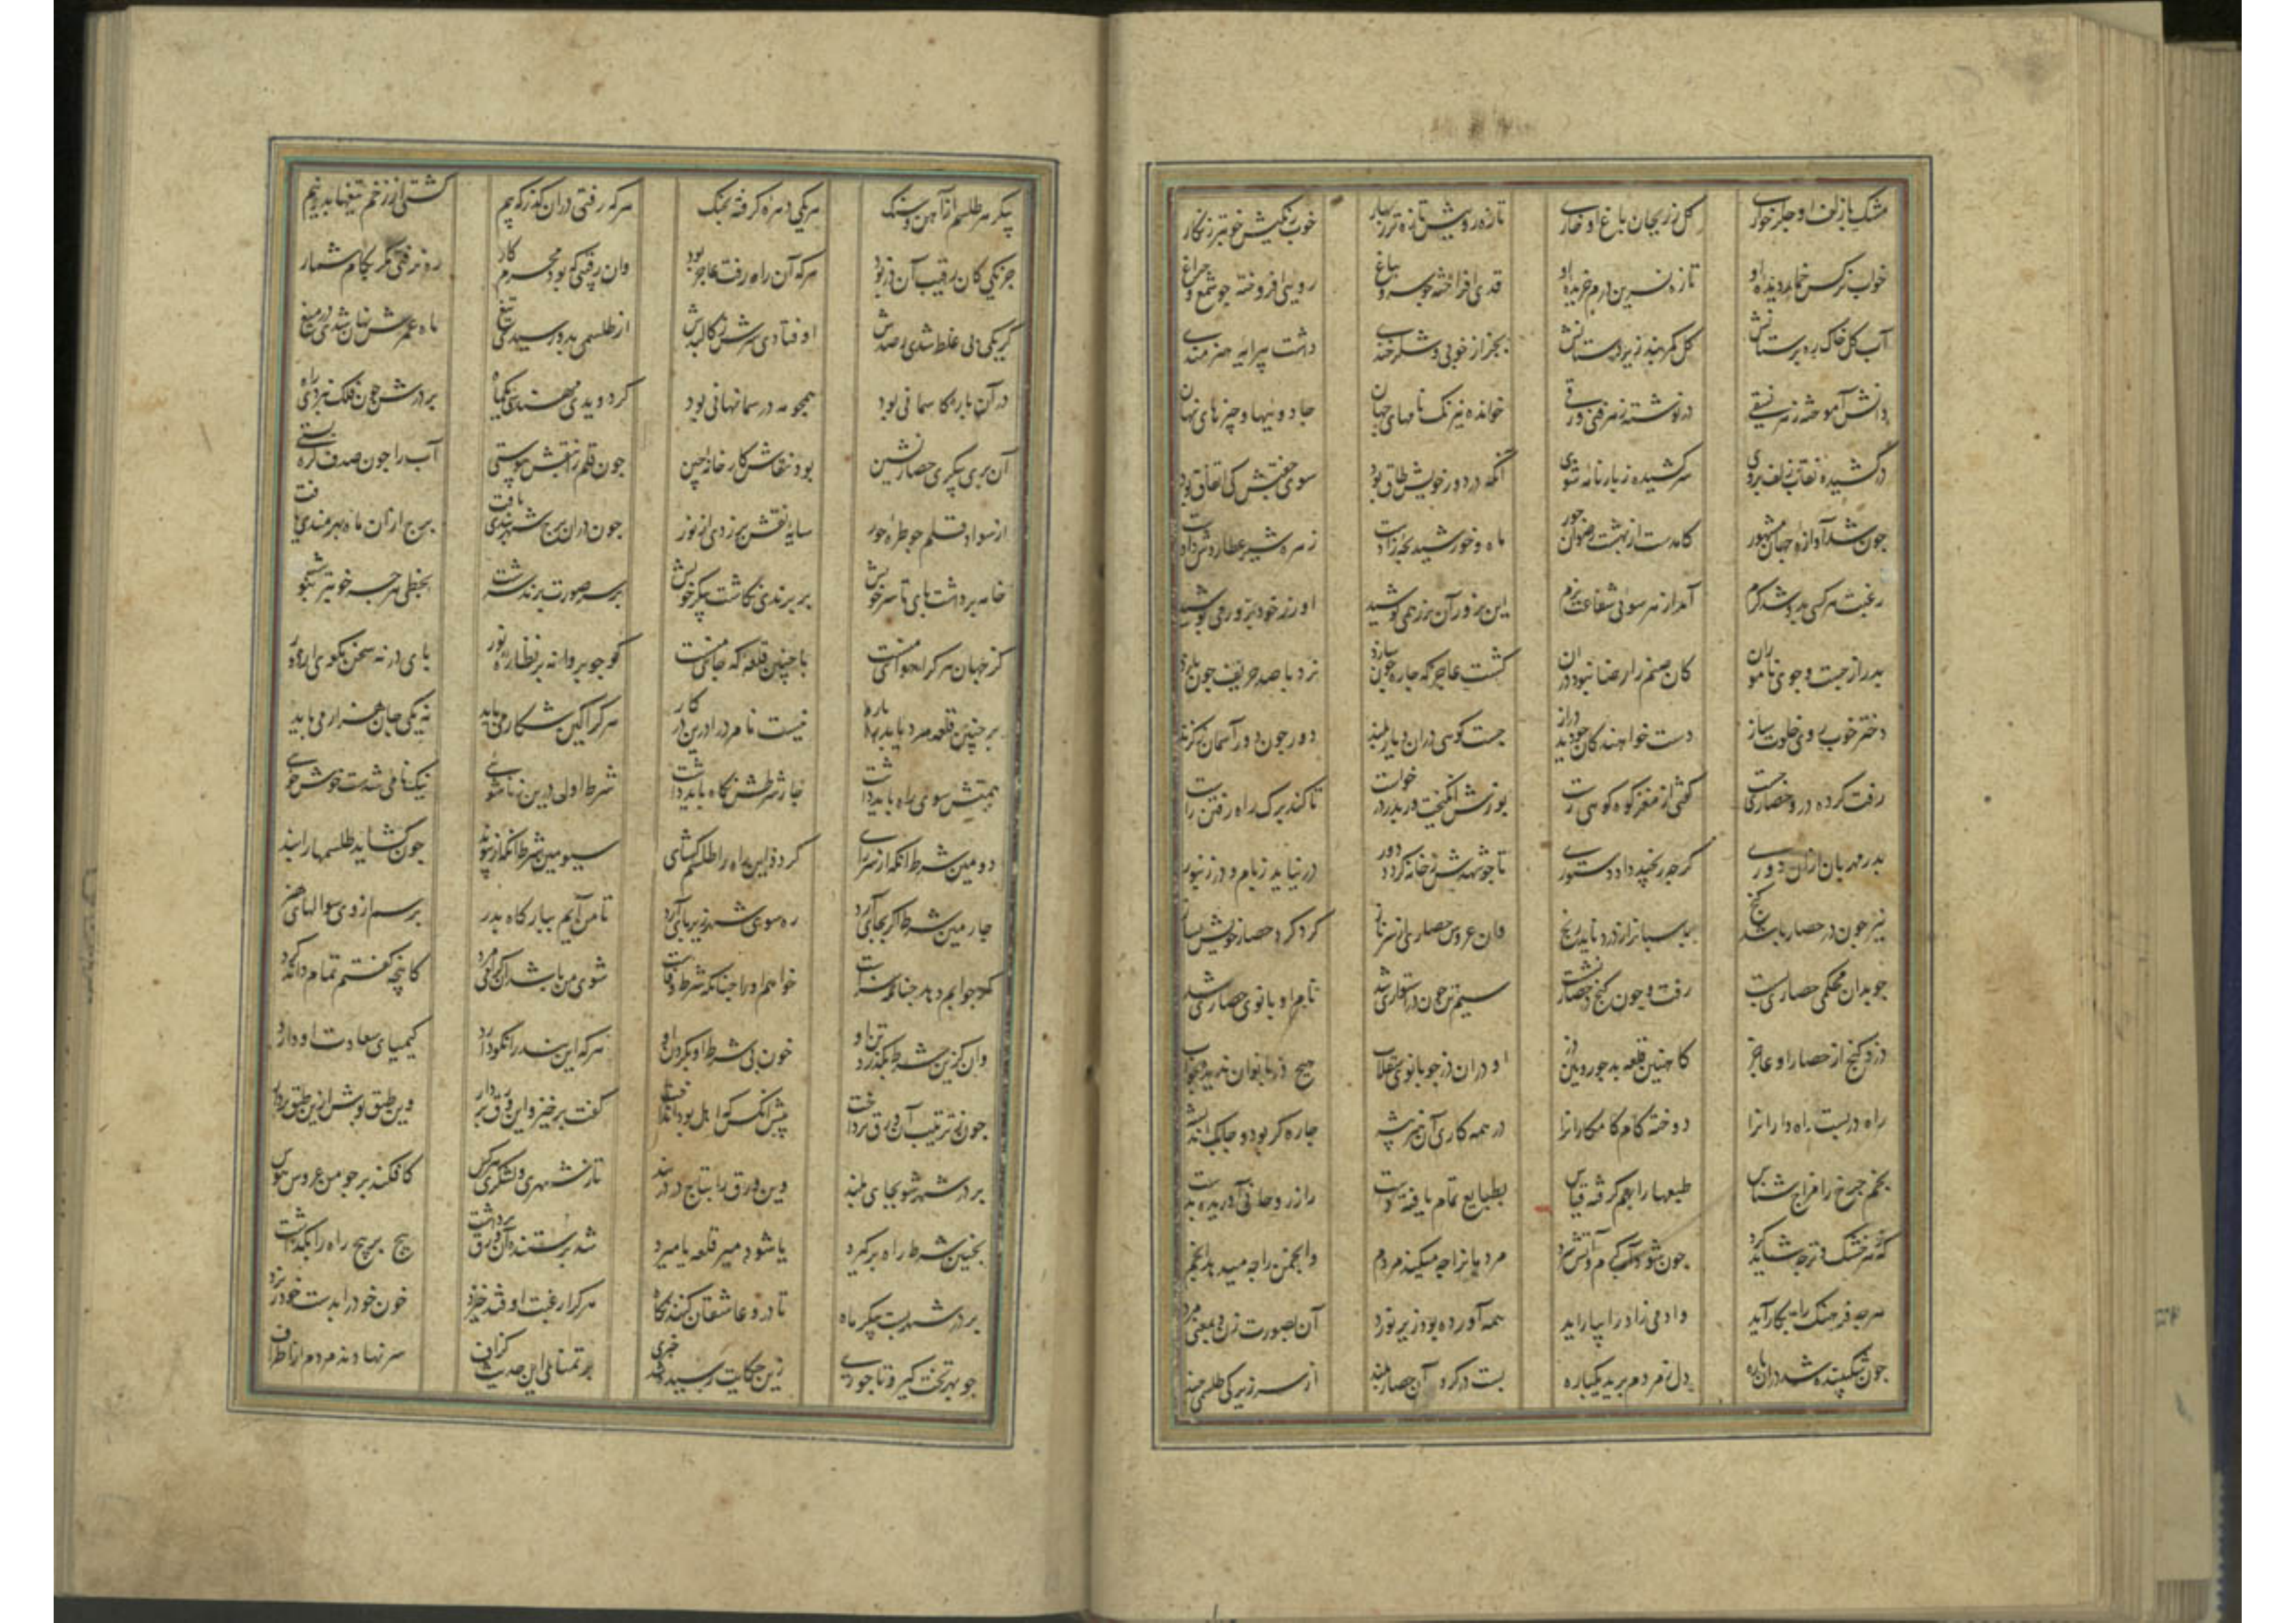 مشک با زلف او جکر خواری کل ز ریحان باغ او خاری تازه رویش تازه تر ز بهار خوب رنکیش خوبتر ز نکار
خواب نرکس خمار دیده او ناز نسرین درم خریده او قدی افراخته چو سرو بباغ رویی افروخته چو شمع و چراغ
آب کل خاک ره پرستانش کل کمر بند زیر دستانش بجز از خوبی و شکر خندی داشت پیرایه هنرمندی
دانش آموخته ز هر نسقی در نوشته ز هر فنی ورقی خوانده نیرنک نامهای جهان جادوئیها و چیزهای نهان
در کشیده نقاب زلف بروی سر کشیده ز بارنامه شوی آنکه در دور خویش طاق بود سوی جفتش کی اتفاق بود
چون شد آوازه در جهان مشهور کامدست از بهشت رضوان حور ماه و خورشید بچه زادست زهره شیر عطاردش دادست
رغبت هر کسی بدو شد کرم آمد از هر سوئی شفاعت نرم این بزور آن بزر همی کوشید او زر خود بزور می پوشید
پدر از جست و جوی ناموران کان صنم را رضا نبود در آن کشت عاجز که چاره چون سازد نرد با صد حریف چون بازد
دختر خوب روی خلوت ساز دست خواهندکان چو دید دراز جست کوهی در آن دیار بلند دور چون دور آسمان ز کزند
رفت کرده درو حصاری چست کفتی از مغز کوه کوهی رست پوزش انکیخت و ز پدر درخواست تا کند برک راه رفتن راست
پدر مهربان از آن دوری کرچه رنجید داد دستوری تا چو شهدش ز خانه کردد دور در نیاید ز بام و در زنبور
نیز چون در حصار باشد کنج پاسبانرا ز دزد ناید رنج وان عروس حصاری از سر ناز کرد کرد حصار خویش بساز
چو بدان محکمی حصاری بست رفت و چون کنج در حصار نشست سیمتن چون در استواری شد نام او بانوی حصاری شد
دزد کنج از حصار او عاجز کاهنین قلعه بد چو رویین دز او در آن دز چو بانوی سقلاب هیچ دز بانوان ندیده بخواب
راه در بست راه دارانرا دوخته کام کامکارانرا در همه کاری آن هنر پیشه چاره کر بود و چابک اندیشه
انجم چرخ را مزاج شناس طبعها را بهم کرفته قیاس بطبایع تمام یافته دست راز روحانی آوریده بدست
که ز هر خشک و تر چه شاید کرد چون شود آب کرم و آتش سرد مردمانرا چه میکند مردم وانجمن را چه میدهد انجم
هر چه فرهنک را بکار آید وادمی زاد را بیاراید همه آورده بود زیر نورد آن بصورت زن و بمعنی مرد
چون شکیبنده شد در آن باره دل ز مردم برید یکباره بست در کرد آن حصار بلند از سر زیرکی طلسمی چند
پیکر هر طلسم از آهن و سنک هر یکی دهره کرفته بچنک هر که رفتی در آن کذر که بیم کشتی از زخم تیغها بدو نیم
جز یکی کان رقیب آن دز بود هر که آن راه رفت عاجز بود وان رقیبی که بود محرم کار ره نرفتی مکر بکام شمار
کر یکی پی غلط شدی ز صدش اوفتادی سرش ز کالبدش از طلسمی بدو رسیدی تیغ ماه عمرش نهان شدی در میغ
در آن باره کاسمانی بود همچو مه در سما نهانی بود کر دویدی مهندسی یکماه بر درش چون فلک نبردی راه
آن پری پیکر حصار نشین بود نقاش کارخانه چین چون قلم را بنقش پیوستی آب را چون صدف کره بستی
از سواد قلم چو طره حور سایه نقش بر زدی از نور چون در آن برج شهر بندی یافت برج از آن ماه بهرمندی یافت
خامه برداشت پای تا سر خویش بر پرندی نکاشت پیکر خویش بر سر صورت پرند سرشت بخطی هر چه خوبتر بنوشت
کز جهان هر کرا هوای منست با چنین قلعه که جای منست کو چو پروانه بر نظاره نور پای در نه سخن مکوی از دور
بر چنین قلعه مرد یابد بار نیست نامرد را درین در کار هر کرا این شکار می باید نه یکی جان هزار می باید
همتش سوی راه باید داشت چار شرطش نکاه باید داشت شرط اول درین زناشوئی نیکنامی شدست و خوش خوئی
دومین شرط آنکه از سر رای کردد این راه را طلسم کشای سیومین شرط آنکه از پیوند چون کشاید طلسمها را بند
چارمین شرط اکر بجای آرد ره سوی شهر زیر پای آرد تا من آیم ببارکاه پدر پرسم از وی سوالهای هنر
کر جوابم دهد چنانکه سزاست خواهم او را چنانکه شرط وفاست شوی من باشد آن کرامی مرد کانچه کفتم تمام داند کرد
وان کزین شرط بکذرد تن او خون بی شرط او بکردن او هر که این پند را نکو دارد کیمیای سعادت او دارد
چون ز ترتیب آن ورق پرداخت پیش آنکس که اهل بود انداخت کفت برخیز و این ورق بردار وین طبق پوش ازین طبق بردار
بر در شهر شو بجای بلند وین ورق را بتاج در دربند تا ز شهری و لشکری هر کس کافکند بر چو من عروس هوس
بچنین شرط راه برکیرد یا شود میر قلعه یا میرد شد پرستنده آن ورق برداشت پیچ بر پیچ راه را بکذاشت
بر در شهر بست پیکر ماه تا درو عاشقان کنند نکاه هر کرا رغبت اوفتد خیزد خون خود را بدست خود ریزد
چو بهر تخت کیر و تاجوری زین حکایت رسیده شد خبری بر تمنای این حدیث کزاف سر نهادند مردم از اطراف